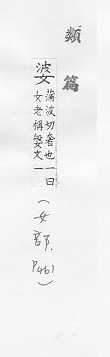 類篇
婆
蒲波切奢也一曰
女老稱婆文一
(女部.P461)